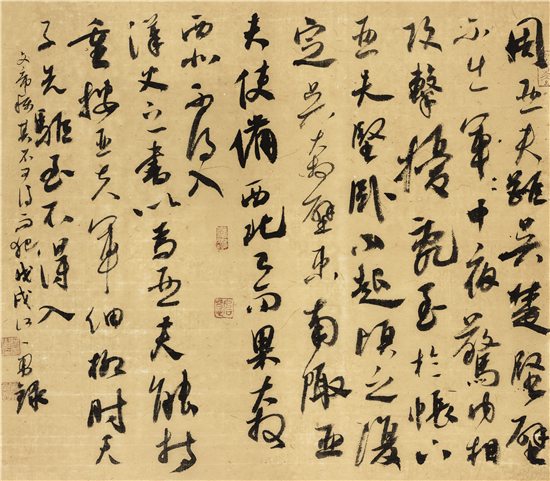 周亞夫距吴楚堅壁
不出軍中夜驚内相
攻擊擾亂至於帳下
亞夫堅卧不起頃之復
定吴奔壁東南陬亞
夫使備西北已而果奔
西北不得入
漢史書以為亞夫能持
重按亞夫軍細柳時天
子先驅至不得入
文帝稱其不可得而犯戊戌錄